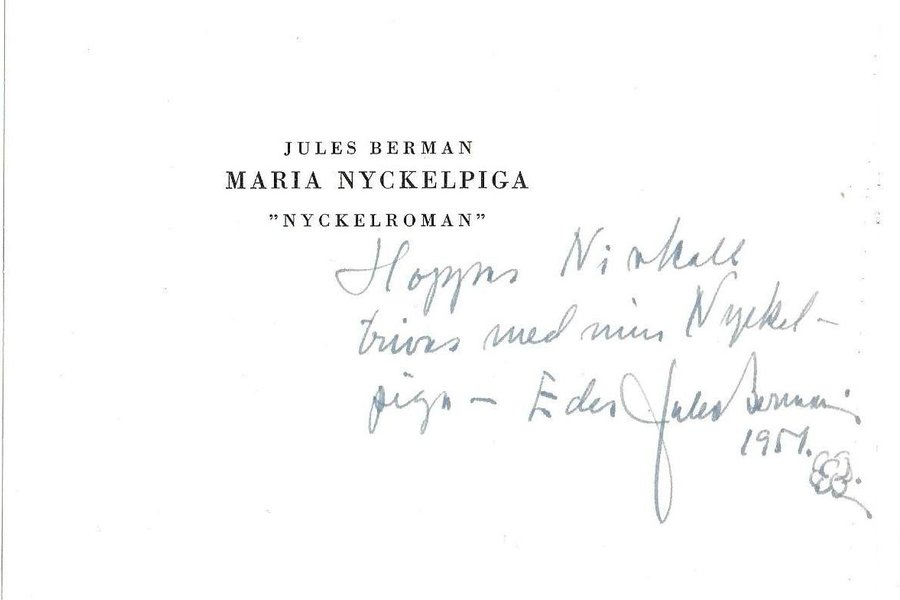 JULES BERMAN
MARIA NYCKELPIGA
”NYCKELROMAN”
Hoppas Ni skall
trivas med min Nyckel-
piga — Eder Jules Berman
1951.